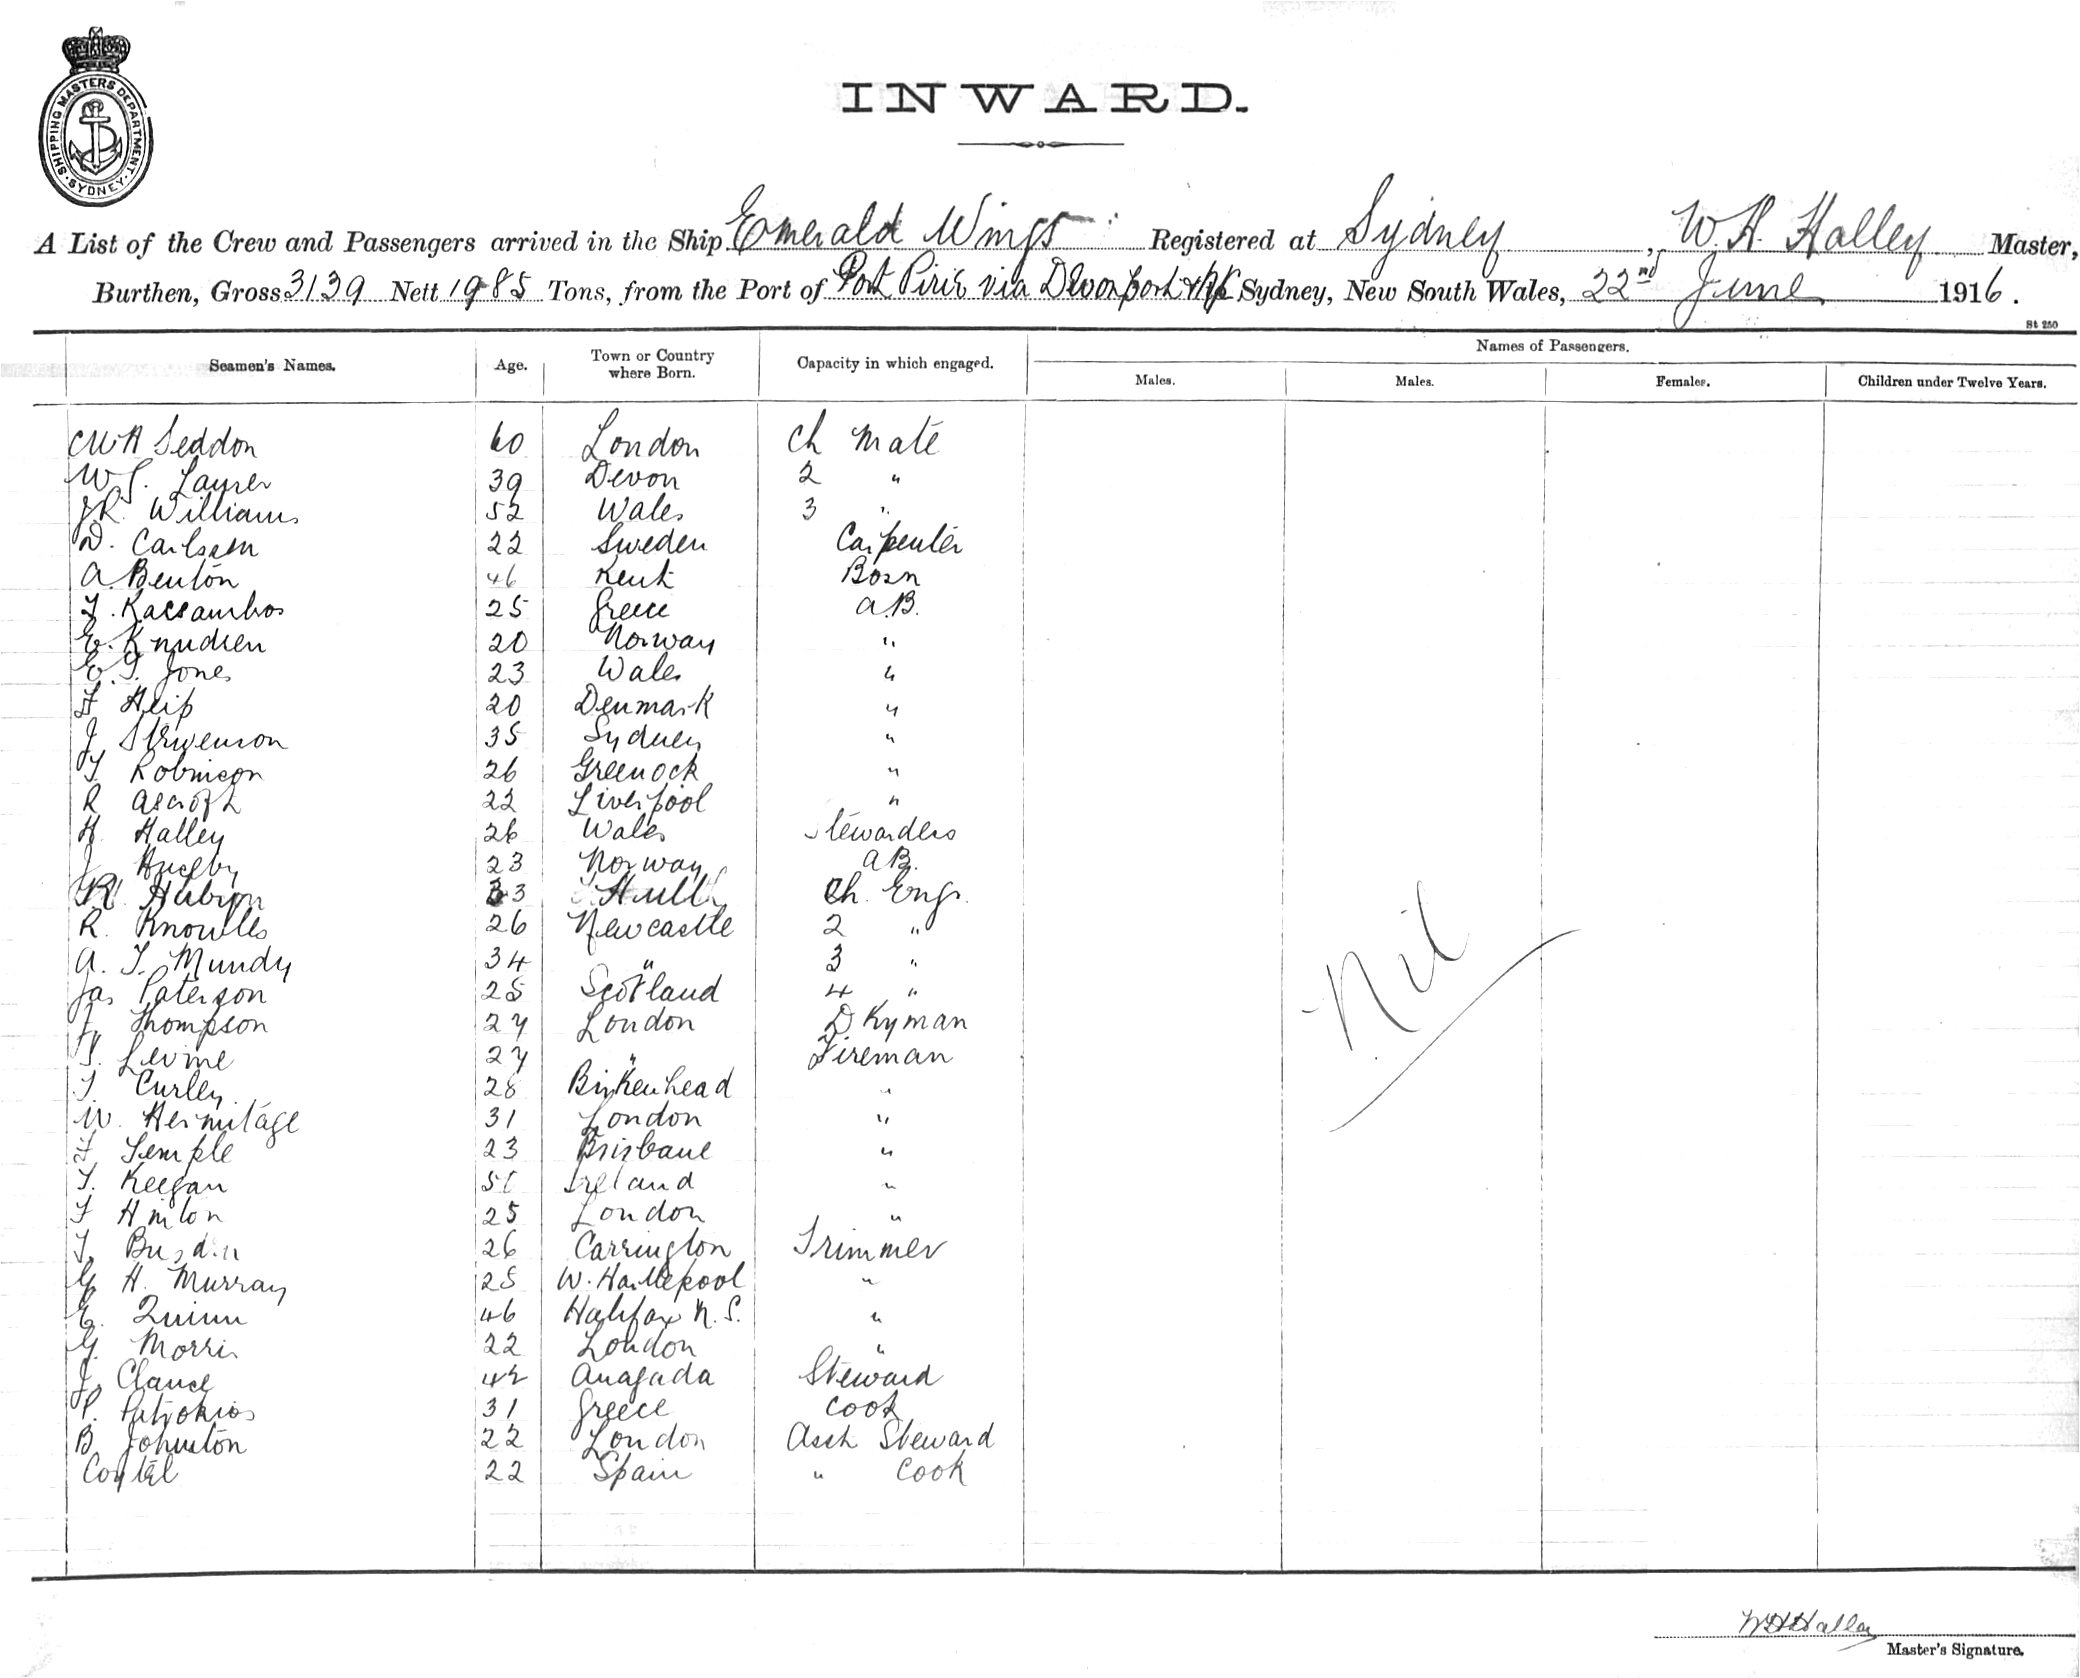 SHIPPING MASTERS DEPARTMENT. SYDNEY
INWARD.
A List of the Crew and Passengers arrived in the Ship Emerald Wings Registered at Sydney, W. H. Halley Master,
Burthen, Gross 3139 Nett 1985 Tons, from the Port of Port Pirie via Devonport Sydney, New South Wales, 22nd June 1916.
St 250
Seamen's Names. Age. Town or Country where Born. Capacity in which engaged. Names of Passengers.
Males. Males. Females. Children under Twelve Years.
CWH Seddon 60 London Ch Mate
W 39 Devon 2 "
JR Williams 52 Wales 3 "
D. Carlssen 22 Sweden Carpenter
A. Benton 46 Kent Bosn
Kassimbos 25 Greece A.B.
E. Knudsen 20 Norway "
E. T. Jones 23 Wales "
F Heip 20 Denmark "
J Stevenson 35 Sydney "
T Robinson 26 Greenock "
R Ascroft 22 Liverpool "
H. Halley 26 Wales Stewardess
J 23 Norway A.B.
R. 33 Hull Ch. Engr.
R. Knowles 26 Newcastle 2 "
A. T. Mundy 34 " 3 "
Jas Paterson 25 Scotland 4 "
J. Thompson 27 London Dkyman
S. Levine 27 " Fireman
T. Curley 28 Birkenhead "
W. Hermitage 31 London "
F Temple 23 Brisbane "
T. Keegan 51 Ireland "
F Hinton 25 London "
T. 26 Carrington Trimmer
G H. Murray 25 W. Hartlepool "
E. Quinn 46 Halifax N.S. "
G. Morris 22 London "
J. Clance 42 Anagada Steward
P. 31 Greece Cook
B. Johnston 22 London Asst Steward
22 Spain " Cook
Nil
WHHalley
Master's Signature.